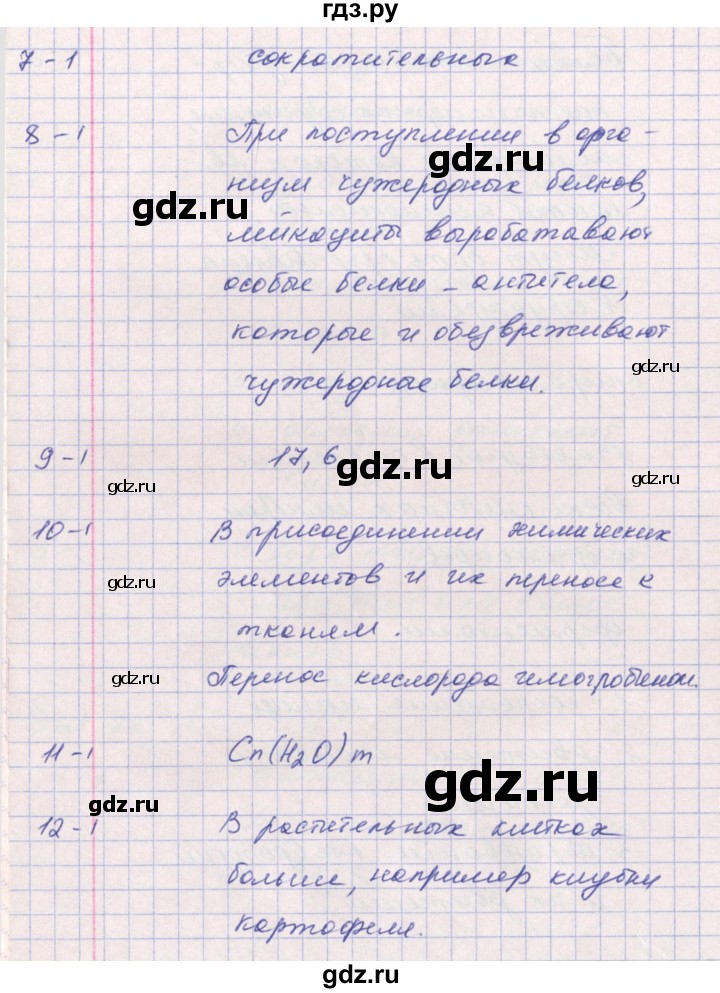 гдз.ру
7-1 сократительных
8-1 При поступлении в орга-
низм чужеродных белков,
лейкоциты вырабатавают
особые белки - антитела,
которые и обезвреживают
чужеродные белки.
9-1 17,6
10-1 В присоединении химических
элементов и их переносе к
тканям.
Перенос кислорода гемогробином.
11-1 Cn(H2O)m
12-1 В растительных клетках
больше, например клубни
картофеля.
gdz.ru
gdz.ru
gdz.ru
gdz.ru
gdz.ru
gdz.ru
gdz.ru
gdz.ru
gdz.ru
gdz.ru
gdz.ru